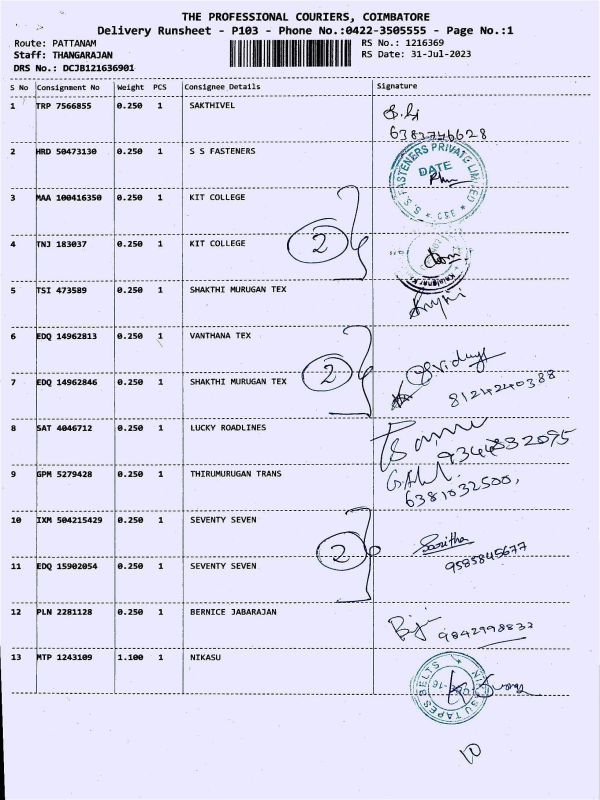 THE PROFESSIONAL COURIERS, COIMBATORE
Delivery Runsheet - P103 - Phone No.:0422-3505555 - Page No.:1
Route: PATTANAM RS No.: 1216369
Staff: THANGARAJAN RS Date: 31-Jul-2023
DRS No.: DCJB121636901
S No Consignment No Weight PCS Consignee Details Signature
1 TRP 7566855 0.250 1 SAKTHIVEL
6383746628
2 HRD 50473130 0.250 1 S S FASTENERS
S.S. FASTENERS PRIVATE LIMITED
DATE
CBE
3 MAA 100416350 0.250 1 KIT COLLEGE
2
4 TNJ 183037 0.250 1 KIT COLLEGE
5 TSI 473589 0.250 1 SHAKTHI MURUGAN TEX
6 EDQ 14962813 0.250 1 VANTHANA TEX
2
7 EDQ 14962846 0.250 1 SHAKTHI MURUGAN TEX
8124240388
8 SAT 4046712 0.250 1 LUCKY ROADLINES
9344832095
9 GPM 5279428 0.250 1 THIRUMURUGAN TRANS
6381032500,
10 IXM 504215429 0.250 1 SEVENTY SEVEN
2
Saritha
11 EDQ 15902054 0.250 1 SEVENTY SEVEN
9585845677
12 PLN 2281128 0.250 1 BERNICE JABARAJAN
9842998832
13 MTP 1243109 1.100 1 NIKASU
TAPES BELTS
10